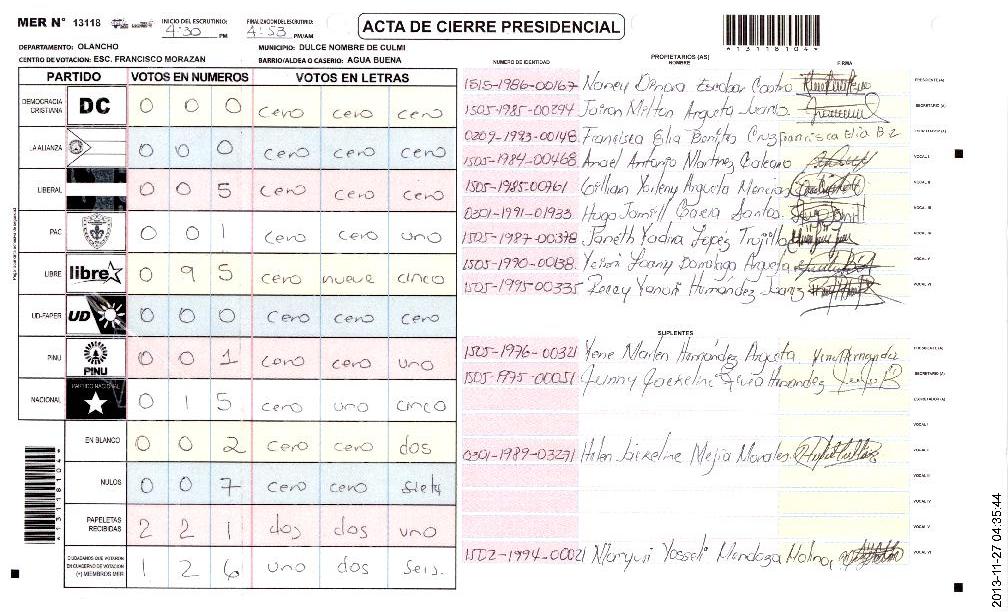 MER N° 13118 INICIO DEL ESCRUTINIO: 4:30 PM FINALIZACION DEL ESCRUTINIO: 4:53 PM/AM
ACTA DE CIERRE PRESIDENCIAL
*1311810 4*
DEPARTAMENTO: OLANCHO MUNICIPIO: DULCE NOMBRE DE CULMI
CENTRO DE VOTACION: ESC. FRANCISCO MORAZAN BARRIO/ALDEA O CASERIO: AGUA BUENA
PARTIDO VOTOS EN NUMEROS VOTOS EN LETRAS
DEMOCRACIA CRISTIANA DC 0 0 0 cero cero cero
LA ALIANZA 0 0 0 cero cero cero
LIBERAL 0 0 5 cero cero cinco
PAC 0 0 1 cero cero uno
LIBRE libre 0 9 5 cero nueve cinco
UD-FAPER UD 0 0 0 cero cero cero
PINU PINU 0 0 1 cero cero uno
NACIONAL PARTIDO NACIONAL 0 1 5 cero uno cinco
EN BLANCO 0 0 2 cero cero dos
NULOS 0 0 7 cero cero siete
PAPELETAS RECIBIDAS 2 2 1 dos dos uno
CIUDADANOS QUE VOTARON EN CUADERNO DE VOTACION (+) MIEMBROS MER 1 2 6 uno dos seis
PROPIETARIOS (AS)
NUMERO DE IDENTIDAD NOMBRE FIRMA
1515-1986-00167 Nancy Dinora Escobar Castro PRESIDENTE (A)
1505-1985-00294 Jairon Milton Argueta Juarez SECRETARIO (A)
0209-1983-00148 Francisca Elia Benitez Cruz Francisca Elia B Z
1505-1984-00468 Angel Antonio Martinez VOCAL I
1505-1985-00761 Yorleny Argueta VOCAL II
0301-1991-01933 Hugo Jamill Garcia Santos VOCAL III
1505-1987-00378 Janeth Yadira Lopez Trujillo VOCAL IV
1505-1990-00138 Yeimi Joany Domingo Argueta VOCAL V
1505-1995-00335 Yanori Hernández Juarez VOCAL VI
SUPLENTES
1505-1976-00321 Yene Marlen Hernández Argueta PRESIDENTE (A)
1505-1975-00051 Junny Jackeline Hernandez SECRETARIO (A)
ESCRUTADOR (A)
VOCAL I
0301-1989-03271 Helen Jackeline Mejia Morales VOCAL II
VOCAL III
VOCAL IV
VOCAL V
1502-1994-00021 Marqui Yosseli Mendoza Molina VOCAL VI
2013-11-27 04:35:44